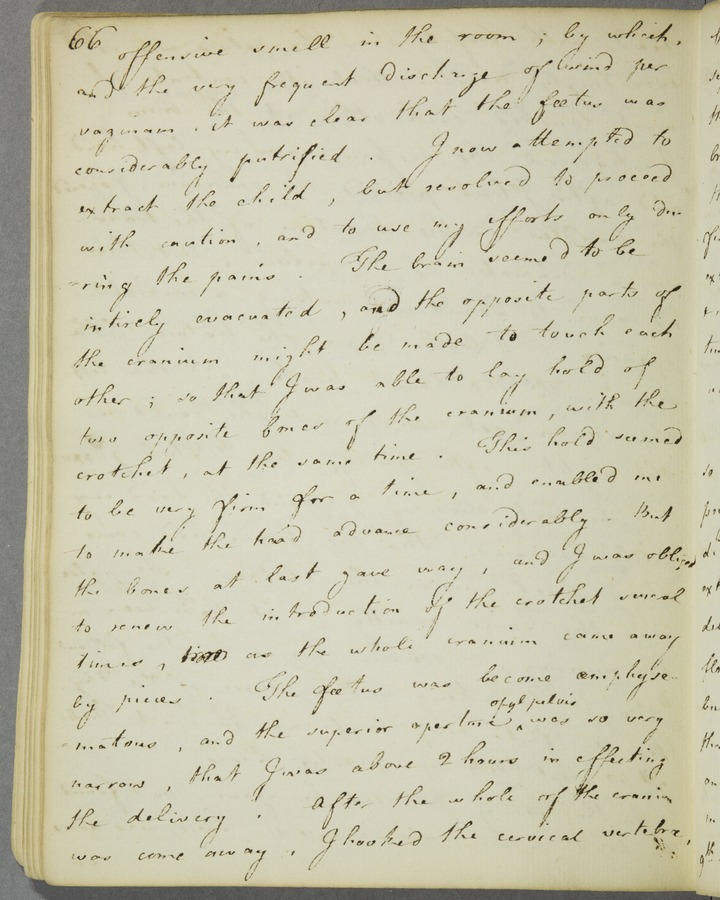 66 offensive smell in the room ; by which,
and the very frequent discharge of wind per
vaginam, it was clear that the fœtus was
considerably putrified . I now attempted to
extract the child , but resolved to proceed
with caution , and to use my efforts only du-
-ring the pains . The brain seemed to be
intirely evacuated , and the opposite parts of
the cranium might be made to touch each
other ; so that I was able to lay hold of
two opposite bones of the cranium, with the
crotchet , at the same time . This hold seemed
to be very firm for a time , and enabled me
to make the head advance considerably . But
the bones at last gave way , and I was obliged
to renew the introduction of the crotchet several
times , as the whole cranium came away
by pieces . The fœtus was become emphyse-
ofyͤ pelvis
-matous , and the superior aperture ‸ was so very
narrow , that I was above 2 hours in effecting
the delivery . After the whole of the cranium
was come away , I hooked the cervical vertebræ,